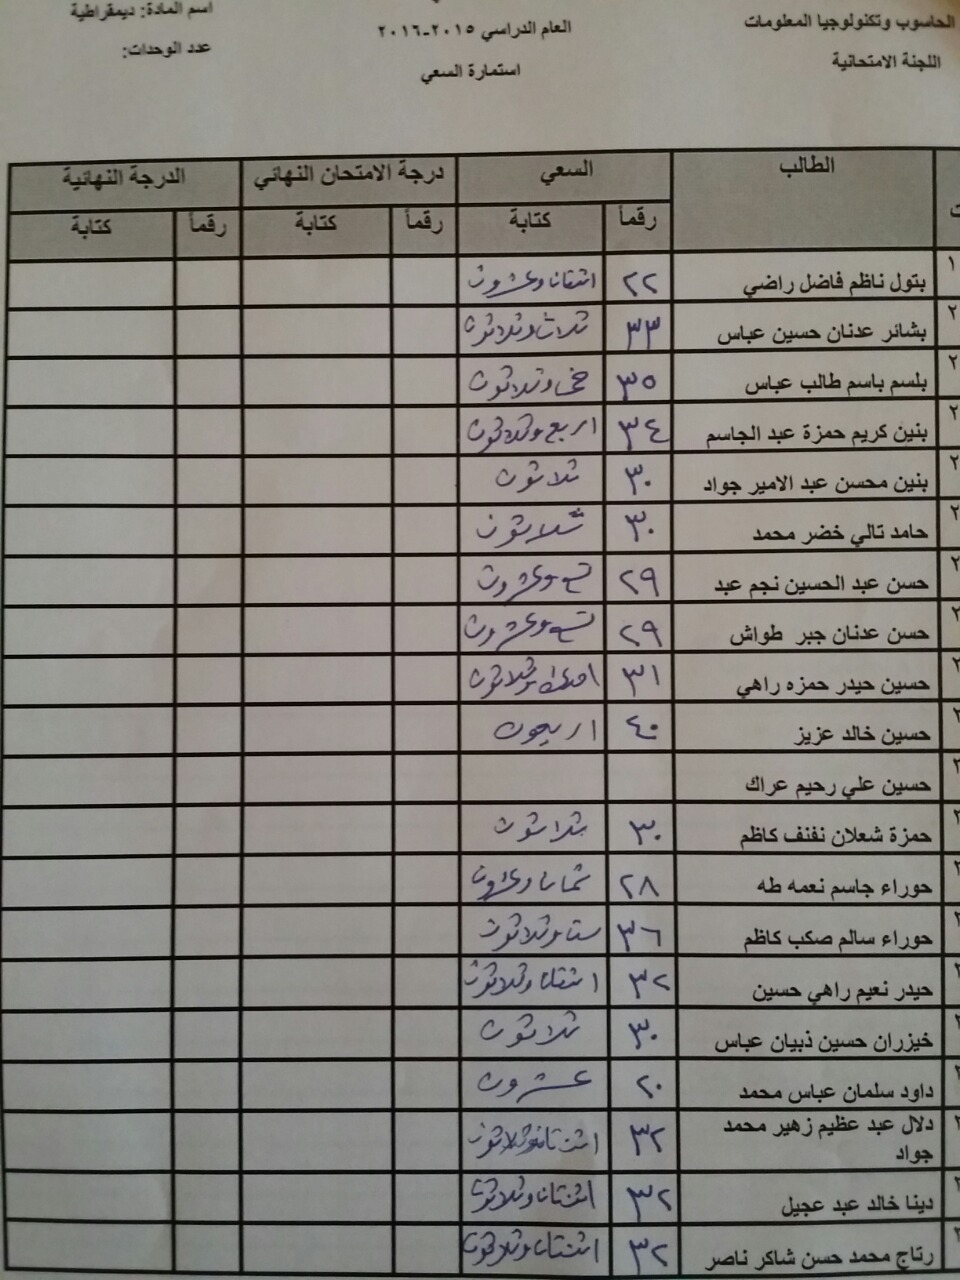 الحاسوب وتكنولوجيا المعلومات
اللجنة الامتحانية
العام الدراسي ٢٠١٥-٢٠١٦
استمارة السعي
اسم المادة: ديمقراطية
عدد الوحدات:
ت الطالب السعي درجة الامتحان النهائي الدرجة النهائية
رقماً كتابة رقماً كتابة رقماً كتابة
بتول ناظم فاضل راضي ٢٢ اثنتان وعشرون
بشائر عدنان حسين عباس ٣٣ ثلاث وثلاثون
بلسم باسم طالب عباس ٣٥ خمس وثلاثون
بنين كريم حمزة عبد الجاسم ٣٤ اربع وثلاثون
بنين محسن عبد الامير جواد ٣٠ ثلاثون
حامد تالي خضر محمد ٣٠ ثلاثون
حسن عبد الحسين نجم عبد ٢٩ تسع وعشرون
حسن عدنان جبر طواش ٢٩ تسع وعشرون
حسين حيدر حمزه راهي ٣١ احدى وثلاثون
حسين خالد عزيز ٤٠ اربعون
حسين علي رحيم عراك
حمزة شعلان نفنف كاظم ٣٠ ثلاثون
حوراء جاسم نعمه طه ٢٨ ثمان وعشرون
حوراء سالم صكب كاظم ٣٦ ست وثلاثون
حيدر نعيم راهي حسين ٣٢ اثنتان وثلاثون
خيزران حسين ذبيان عباس ٣٠ ثلاثون
داود سلمان عباس محمد ٢٠ عشرون
دلال عبد عظيم زهير محمد
جواد ٣٢ اثنتان وثلاثون
دينا خالد عبد عجيل ٣٢ اثنتان وثلاثون
رتاج محمد حسن شاكر ناصر ٣٢ اثنتان وثلاثون